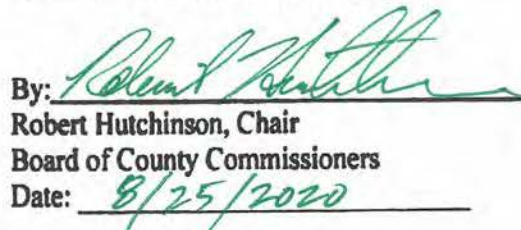 By: Robert Hutchinson
Robert Hutchinson, Chair
Board of County Commissioners
Date: 8/25/2020